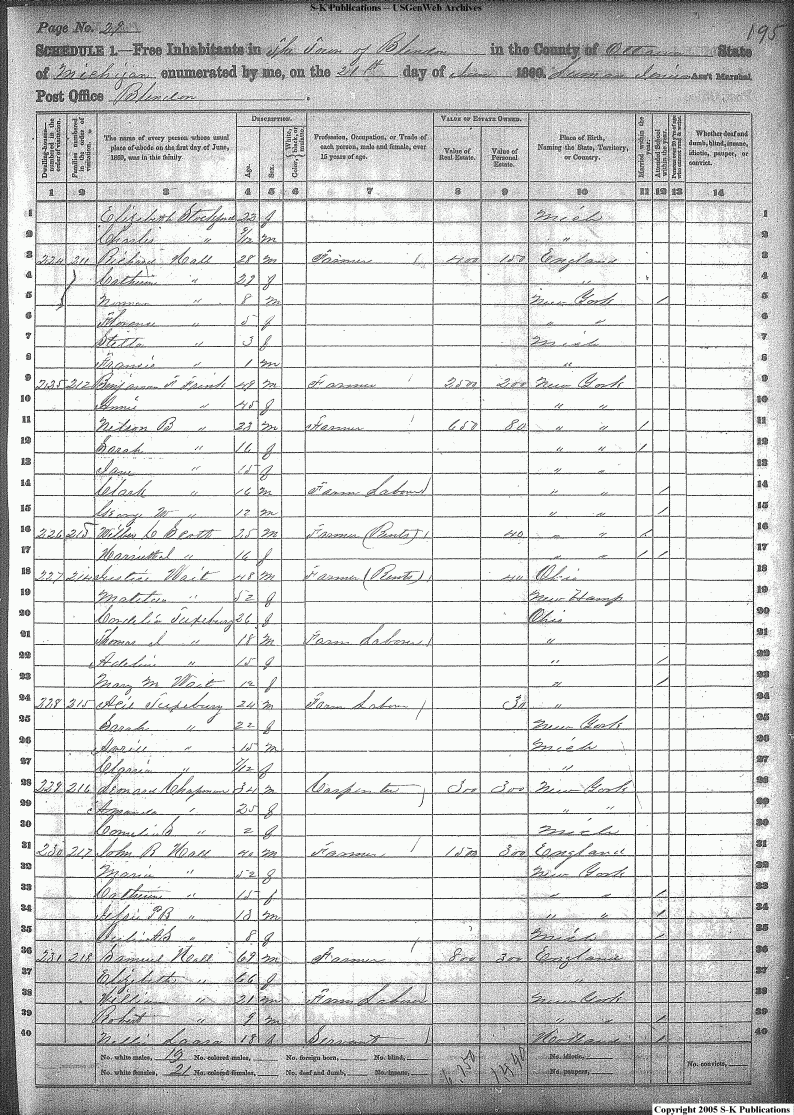 S-K Publications -- USGenWeb Archives
Page No. 28
195
SCHEDULE 1.—Free Inhabitants in The Town of Blendon in the County of Ottawa State
of Michigan enumerated by me, on the 21st day of 1860. Ass't Marshal.
Post Office Blendon.
Dwelling-houses—numbered in the order of visitation.
Families numbered in the order of visitation.
The name of every person whose usual place of abode on the first day of June, 1860, was in this family.
DESCRIPTION.
Age.
Sex.
Color, White, black, or mulatto.
Profession, Occupation, or Trade of each person, male and female, over 15 years of age.
VALUE OF ESTATE OWNED.
Value of Real Estate.
Value of Personal Estate.
Place of Birth, Naming the State, Territory, or Country.
Married within the year.
Attended School within the year.
Persons over 20 y'rs of age who cannot read & write.
Whether deaf and dumb, blind, insane, idiotic, pauper, or convict.
1 2 3 4 5 6 7 8 9 10 11 12 13 14
1 Elizabeth 22 f Mich 1
2 Charles " /12 m " 2
3 224 211 Richard Hall 28 m Farmer 400 150 England 3
4 " 29 f " 4
5 Norman " 8 m New York / 5
6 Florence " 5 f " " 6
7 Stella " 3 f Mich 7
8 Francis " 1 m " 8
9 212 Benjamin F 49 m Farmer 2500 200 New York 9
10 " 45 f " " 10
11 Nelson B " 23 m Farmer 650 80 " " / 11
12 Sarah " 16 f " " / 12
13 Jane " 15 f " " 13
14 Clark " 16 m Farm Laborer " " / 14
15 George W " 12 m " " / 15
16 226 213 25 m Farmer (Rents) 40 " " / 16
17 " 16 f " " / / 17
18 227 214 Wait 48 m Farmer (Rents) 40 Ohio 18
19 Matilda " 52 f New Hamp 19
20 Cordelia 26 f Ohio 20
21 Thomas " 18 m Farm Laborer " 21
22 Adeline " 15 f " / 22
23 Mary M Wait 12 f " / 23
24 228 215 24 m Farm Labor 30 " 24
25 Sarah " 22 f New York 25
26 " 15 m Mich 26
27 " /12 f " 27
28 229 216 Leonard Chapman 34 m Carpenter 300 300 New York 28
29 Amanda " 25 f " " 29
30 Cornelia " 2 f Mich 30
31 230 217 John R Hall 40 m Farmer 1500 300 England 31
32 Maria " 52 f New York 32
33 Catherine " 15 f " " / 33
34 " 13 m " " / 34
35 " 8 f Mich / 35
36 231 218 Samuel Hall 69 m Farmer 800 300 England 36
37 Elizabeth " 66 f " 37
38 William " 21 m Farm Laborer New York 38
39 Robert " 9 m " / 39
40 Nellie 18 f Servant Holland / 40
No. white males, 19 No. colored males, No. foreign born, No. blind, No. idiotic,
No. white females, 21 No. colored females, No. deaf and dumb, No. insane, No. paupers, No. convicts,
Copyright 2005 S-K Publications